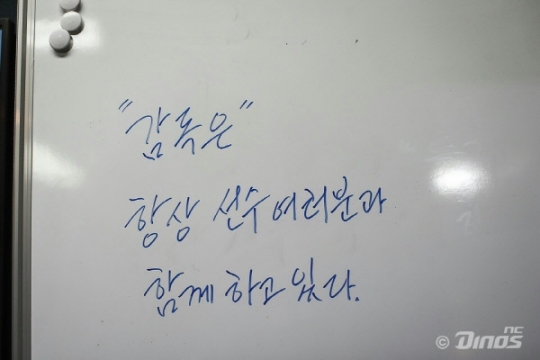 "감독은"
항상 선수여러분과
함께 하고 있다.
© NC Dinos